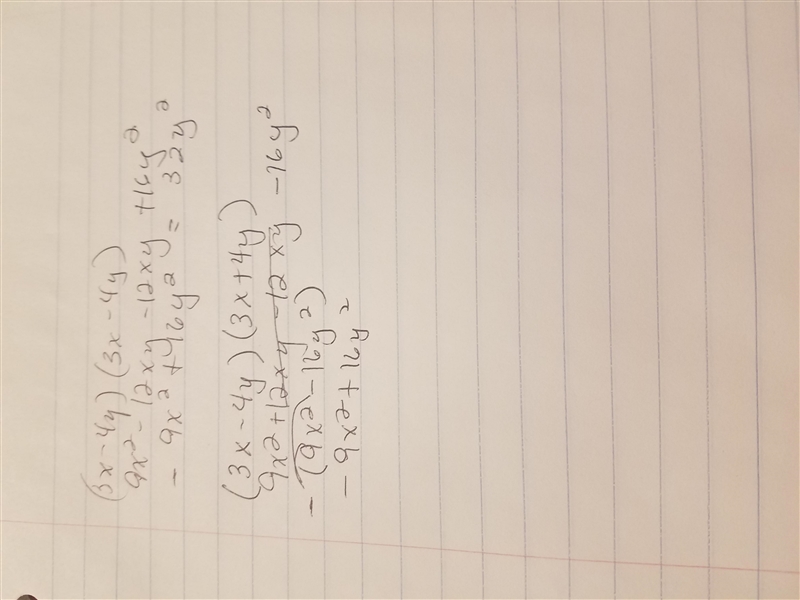 (3x-4y)(3x-4y)
9x²-12xy-12xy+16y²
-9x²+16y² = 32y²
(3x-4y)(3x+4y)
9x²+12xy-12xy-16y²
-(9x²-16y²)
-9x²+16y²